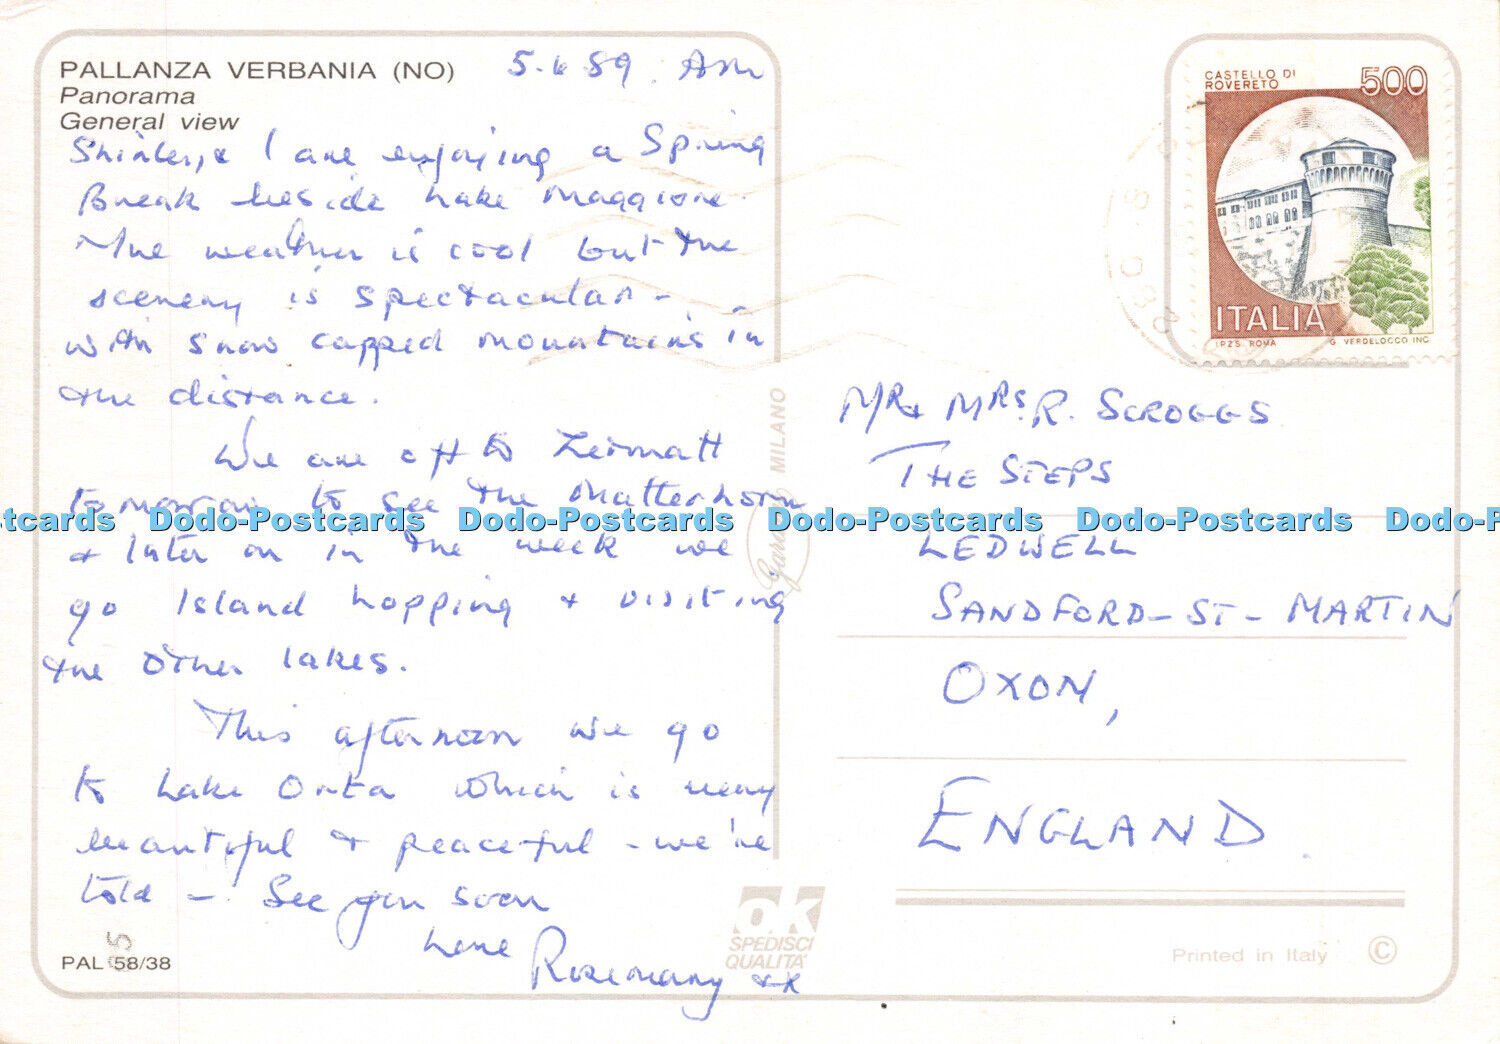 PALLANZA VERBANIA (NO)
Panorama
General view
5.6.89. Am
Shirley, & I are enjoying a Spring
Break beside Lake Maggiore.
The weather is cool but the
scenery is spectacular -
with snow capped mountains in
the distance.
We are off to Zermatt
tomorrow to see the Matterhorn
& later on in the week we
go Island hopping & visiting
the other lakes.
This afternoon we go
to Lake Orta which is very
beautiful & peaceful - we're
told - See you soon
Love
Rosemary xx
PAL 58/38
95
CASTELLO DI
ROVERETO
500
ITALIA
I.P.Z.S. ROMA
G. VERDELOCCO INC.
MR & MRS. R. SCROGGS
THE STEPS
LEDWELL
SANDFORD-ST-MARTIN
OXON,
ENGLAND.
MILANO
ok
SPEDISCI
QUALITA'
Printed in Italy ©
tcards Dodo-Postcards Dodo-Postcards Dodo-Postcards Dodo-Postcards Dodo-P